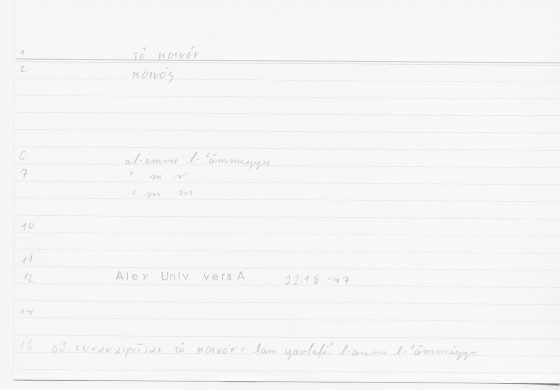 1 τὸ κοινόν
2 κοινός
6 al-amru l-ʿāmmiyyu
7 ʾ m r
ʿ m m
10
11
12 Alex Univ versA 22.18
14
16 οὐ συναναιρεῖται τὸ κοινόν: lam yartafiʿ l-amru l-ʿāmmiyyu